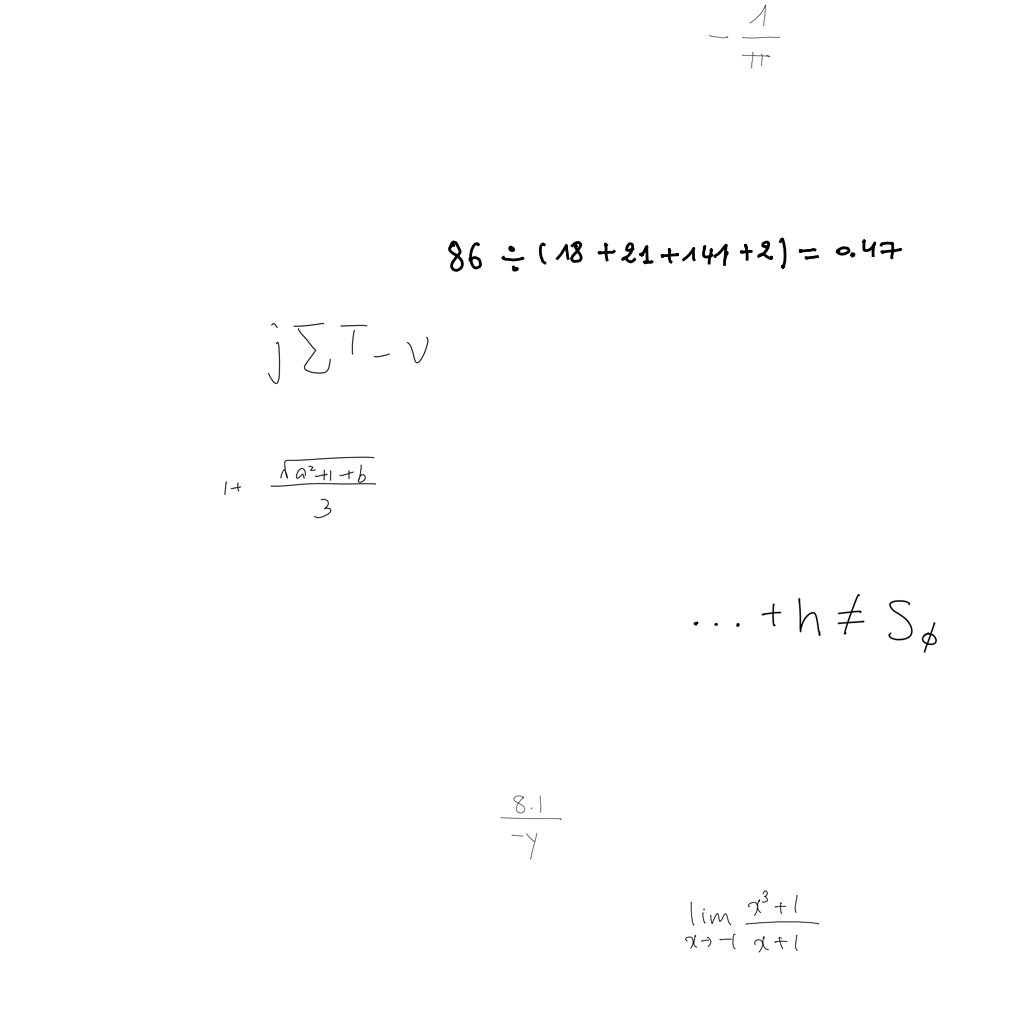 -\frac{1}{\pi}
86 \div (18 + 21 + 141 + 2) = 0.47
j \sum T - v
1 + \frac{\sqrt{a^2 + 1 + b}}{3}
\ldots + h \neq S_{\phi}
\frac{8.1}{-y}
\lim_{x \to -1} \frac{x^3 + 1}{x + 1}